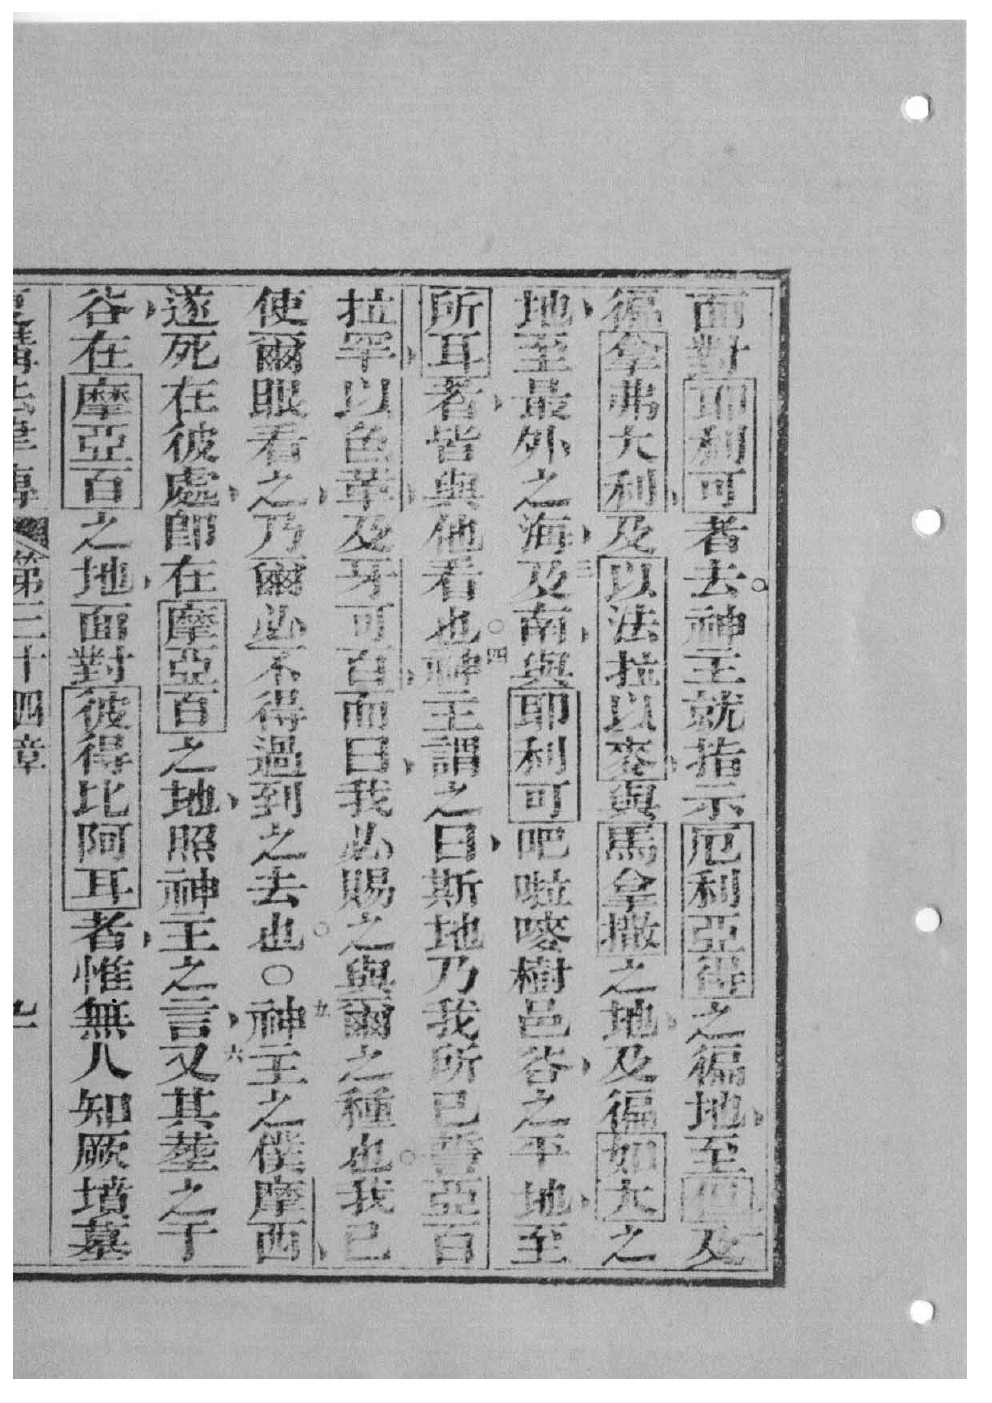 面對耶利可者去。神主就指示厄利亞得之徧地至但及
徧拿弗大利及以法拉以麥與馬拿撒之地及徧如大之
地至最外之海三及南與耶利可吧啦嘜樹邑谷之平地至
所耳者皆與他看也。四神主謂之曰斯地乃我所已誓亞百
拉罕以色革及牙可百而曰我必賜之與爾之種也。我已
使爾眼看之乃爾必不得過到之去也。○五神主之僕摩西
遂死在彼處卽在摩亞百之地照神主之言六又其塟之于
谷在摩亞百之地面對彼得比阿耳者惟無人知厥墳墓
第三十四章